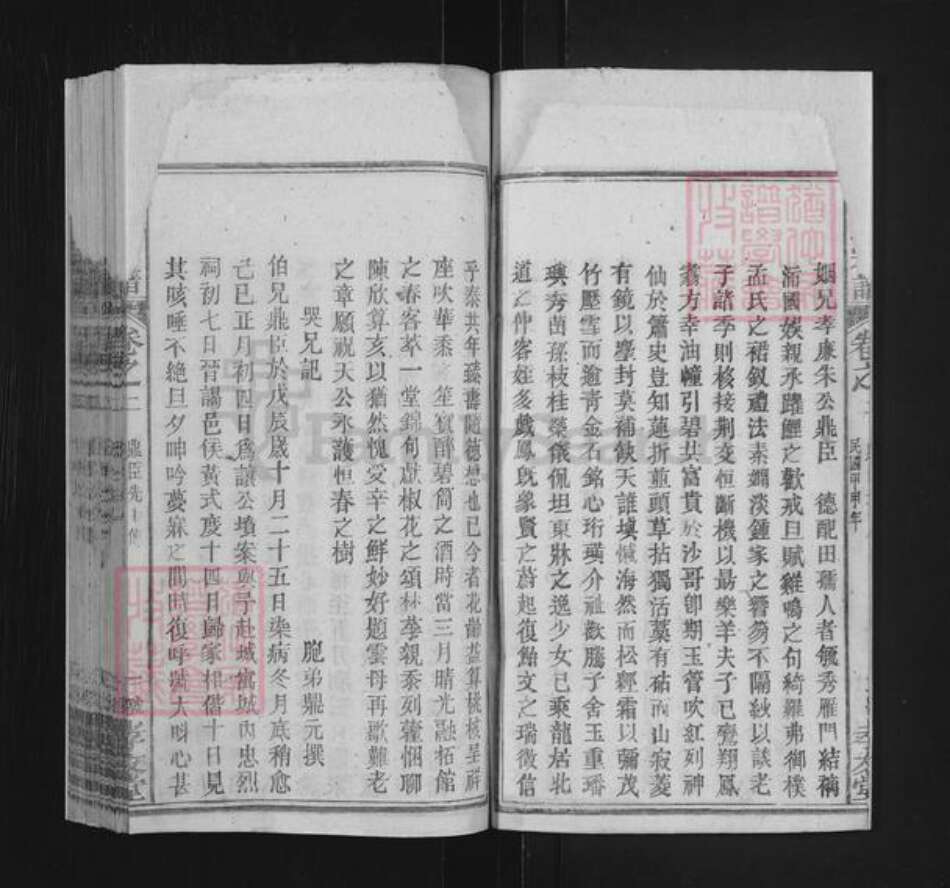 姻兄孝廉朱公鼎臣　德配田孺人者毓秀雁門結褵
浦國娛親承躍鯉之歡戒旦賦雞鳴之句綺羅弗御樸
孟氏之裙釵禮法素嫺淡鍾家之簪笏不隔紗以談老
子諸季則核接荆交恒斷機以勗樂羊夫子已鶱翔鳳
翥方幸油幢引碧共富貴於沙哥卽期玉管吹紅列神
仙於簫史豈知蓮折並頭草拈獨活藁有砧而山寂菱
有鏡以塵封莫補飲天誰塡憾海然而松經霜以彌茂
竹壓雪而逾青金石銘心珩璜介祉歡騰子舍玉重璠
璵秀茁孫枝桂榮儀佩坦東牀之逸少女已乘龍居北
道之仲容姪多戲鳳旣象賢之蔚起復飴文之瑞徵信
乎泰共年臻書隨德想也已今者花齡益算桃核呈祥
座吹華黍　笙賓醉碧筒之酒時當三月晴光融拓館
之春客萃一堂錦旬獻椒花之頌林等親忝列藿悃聊
陳欣算亥以猶然愧受辛之鮮妙好題雲母再歌難老
之章願祝天公永護恒春之樹
哭兄記　胞弟鼎元撰
伯兄鼎臣於戊辰歲十月二十五日染病冬月底稍愈
己巳正月初四日爲讓公墳案與予赴城寓城內忠烈
祠初七日晉謁邑侯黃式度十四日歸家相偕十日見
其咳唾不絕旦夕呻吟夢寐之間時復呼號大明心甚
卷之二
民國甲申年
孝友堂
譜
卷之二
鼎臣先
孝友堂